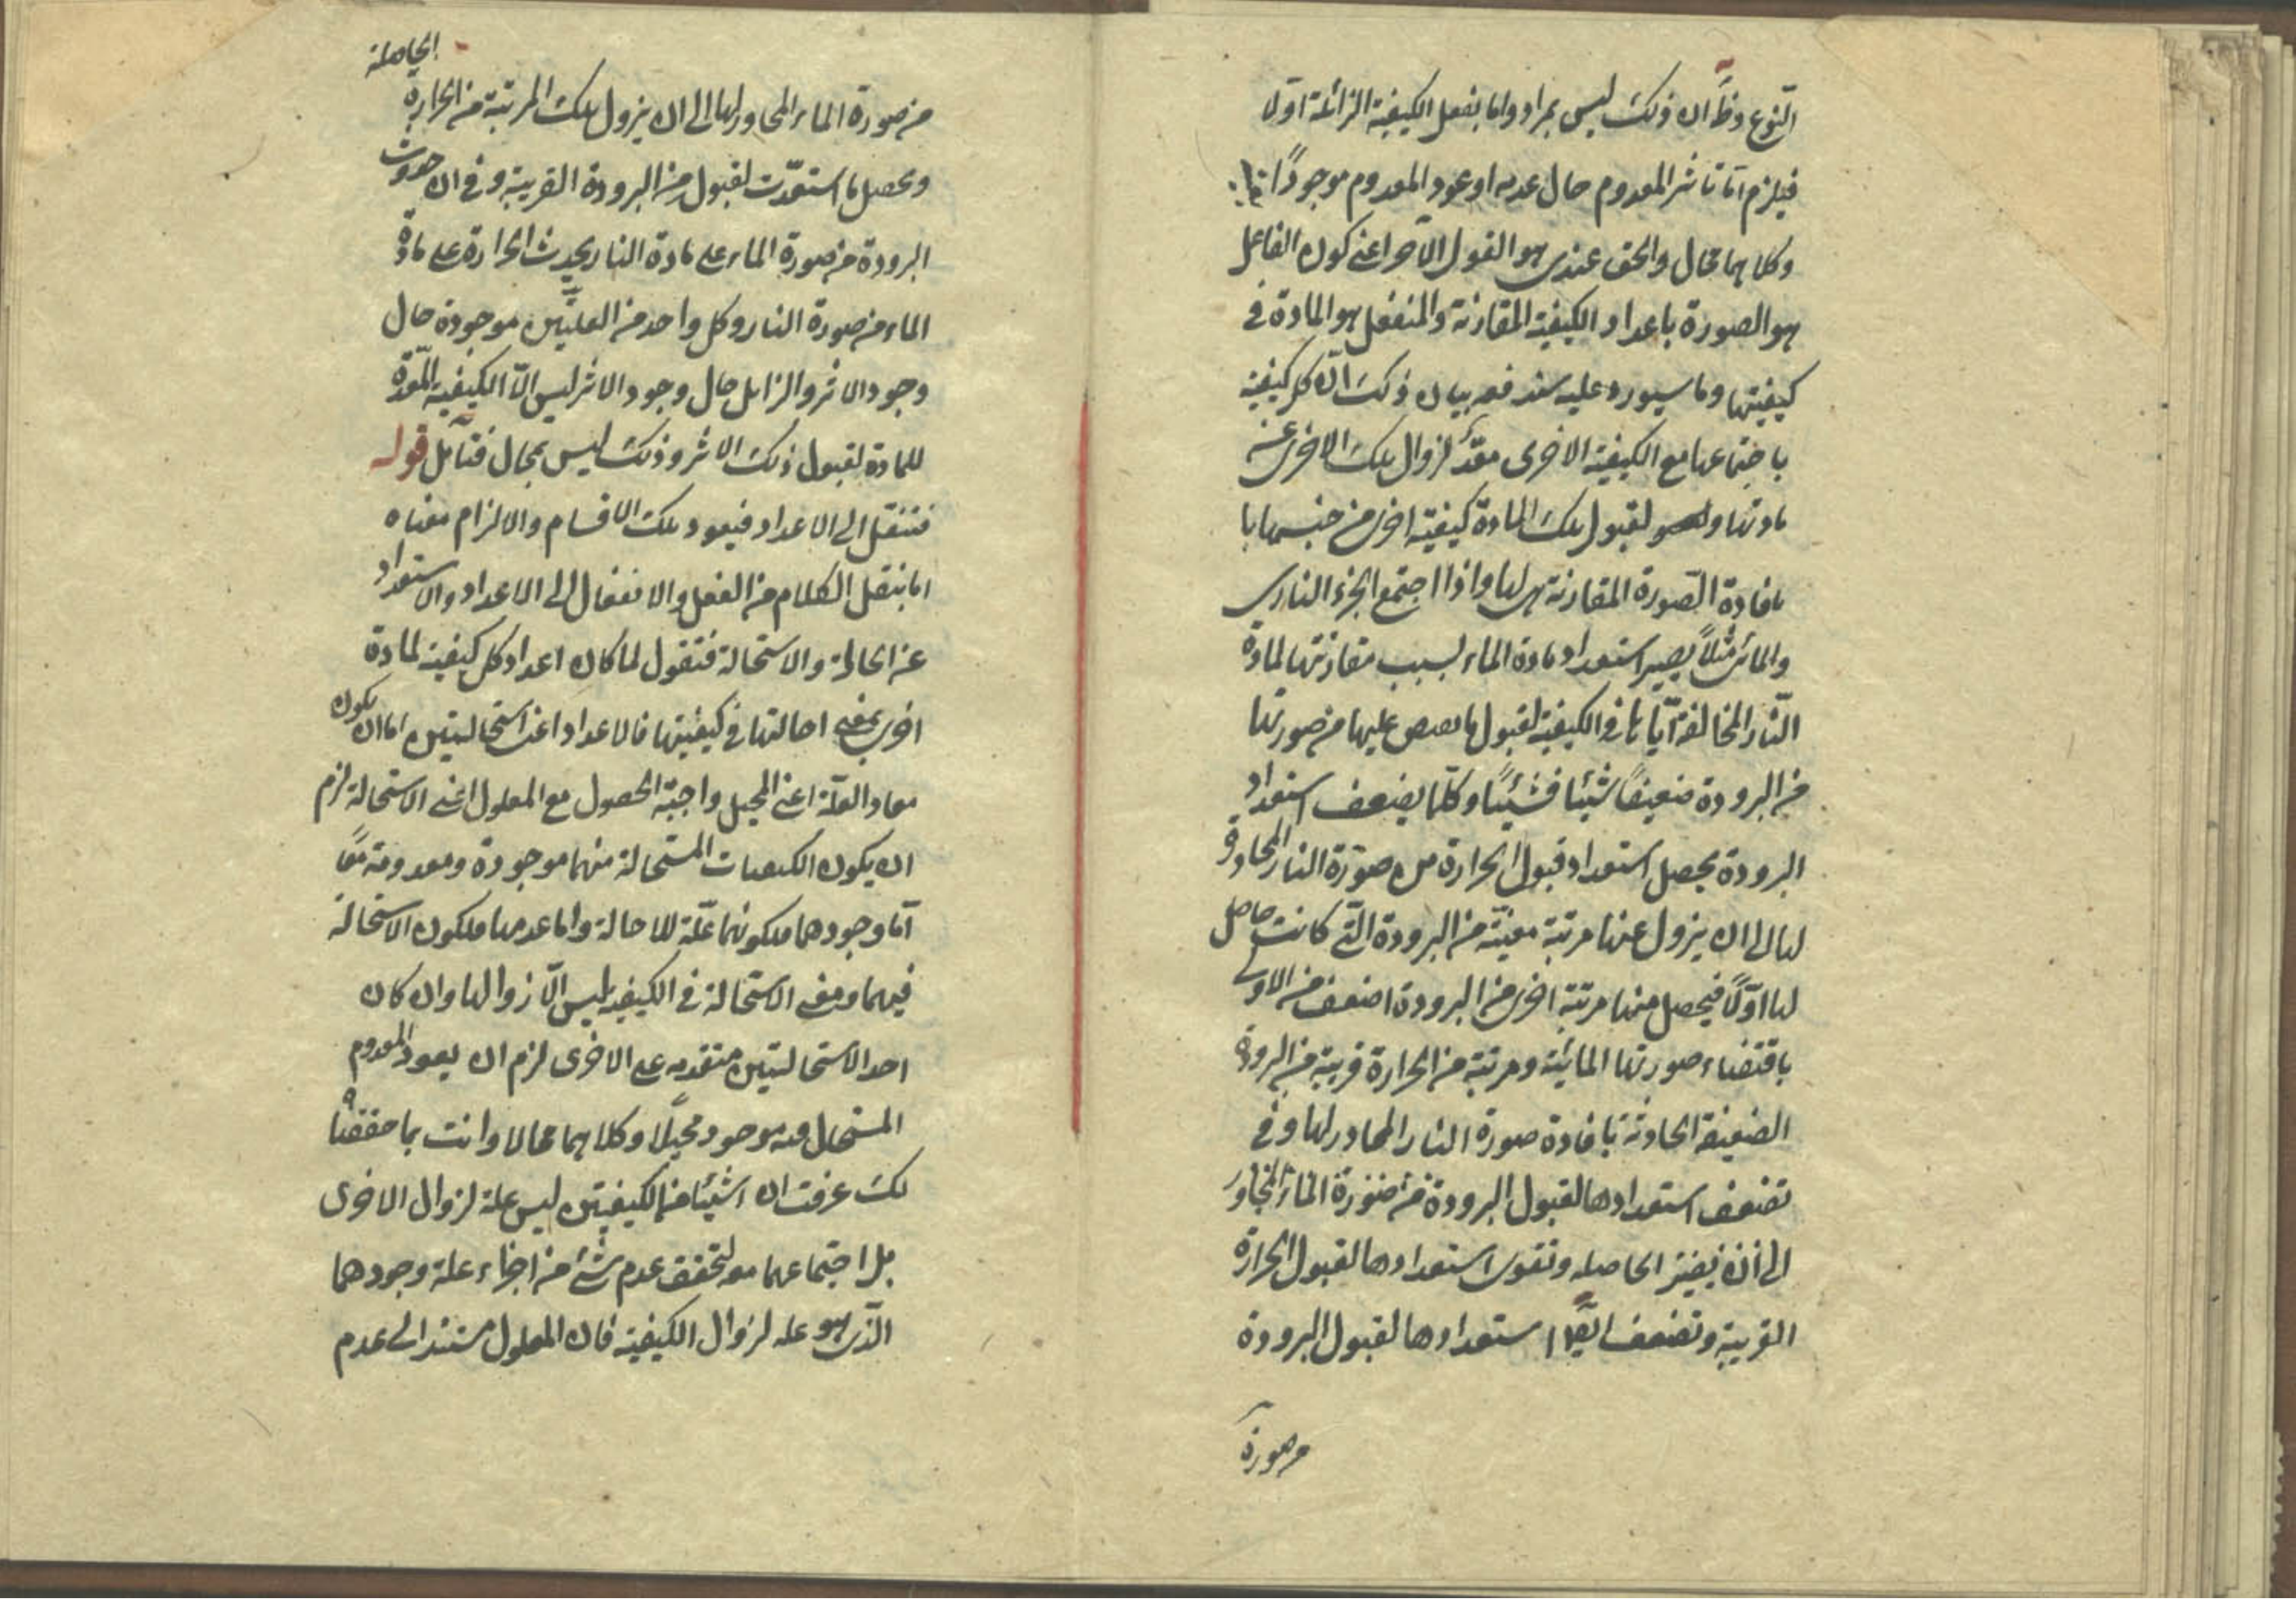 النوع وظ ان ذلك ليس بمراد واما بفعل الكيفية الزائلة اولا
فيلزم اما تاثير المعدوم حال عدمه او عود المعدوم موجودًا
وكلاهما محال والحق عندى هو القول الآخر اعنى كون الفاعل
هو الصورة باعداد الكيفية المقارنة والمنفعل هو المادة فى
كيفيتها وما سيورد عليه سندفعه بيان ذلك انّ كل كيفية
باجتماعها مع الكيفية الاخرى معدّ لزوال تلك الاخرى عن
مادتها ولقبول تلك المادة كيفية اخرى من جنسها با
مافادة الصّورة المقارنة هى لها واذا اجتمع الجزء النارى
والمائى مثلاً يصير استعداد مادة الماء بسبب مقارنتها لمادة
النّار المخالفة ايّاها فى الكيفية لقبول ما يفيض عليها من صورتها
من البرودة ضعيفًا شيئا فشيئًا وكلّما يضعف استعداد
البرودة يحصل استعداد قبول الحرارة من صورة النار المجاورة
لها الى ان يزول عنها مرتبة معيّنة من البرودة التّى كانت حاصل
لها اوّلًا فيحصل منها مرتبة اخرى من البرودة اضعف من الاولى
باقتضاء صورتها المائية ومرتبة من الحرارة قريبة من البرودة
الضعيفة الحادثة بافادة صورة النار المجاور لها وفى
تضعف استعدادها لقبول البرودة من صورة الماء المجاور
الى ان يفتر الحاصله وتقوى استعدادها لقبول الحرارة
القريبة وتضعف ايضًا استعدادها لقبول البرودة
من صورة
الحاصلة
من صورة الماء المجاور لها الى ان يزول تلك المرتبة من الحرارة
ويحصل ما استعدّت لقبول من البرودة القريبة وفى ان حدوث
البرودة من صورة الماء على مادة النار يحدث الحرارة على مادة
الماء من صورة النار وكل واحد من العلتين موجودة حال
وجود الاثر والزايل حال وجود الاثر ليس الّا الكيفية المعدّة
للمادة لقبول ذلك الاثر وذلك ليس بمحال فتأمل قوله
فننقل الى الاعداد فيعود تلك الاقسام والالزام معناه
اما ينقل الكلام من الفعل والانفعال الى الاعداد والاستعداد
عن الحالة والاستحالة فنقول لما كان اعداد كل كيفية لمادة
اخرى بمعنى احالتها فى كيفيتها فالاعداد اعنى استحالتين اما ان يكون
معا والعلّة اعنى المحيل واجبة الحصول مع المعلول اعنى الاستحالة لزم
ان يكون الكيفيات المستحالة منهما موجودة ومعدومة معًا
امّا وجودهما فلكونهما علّة للاحالة واما عدمها فلكون الاستحالة
فيهما ومعنى الاستحالة فى الكيفية ليس الّا زوالها وان كان
احد الاستحالتين متقدمه على الاخرى لزم ان يعود المعدوم
المستحال منه موجود محيلًا وكلاهما محالا وانت بما حققناه
لك عرفت ان شيئا من الكيفيتين ليس علة لزوال الاخرى
بل اجتماعهما معه لتحقق عدم شئ من اجزاء علة وجودهما
الذى هو عله لزوال الكيفية فان المعلول مستند الى عدم